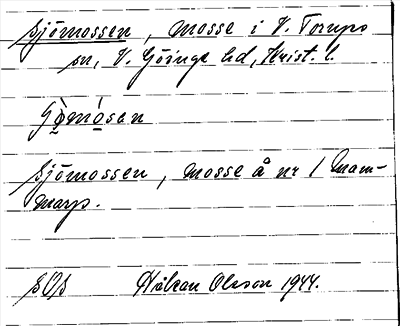 Sjömossen, mosse i V. Torups
sn, V. Göinge hd, Krist. l.
Sjömossen, mosse å nr 1 Mam-
marp.
SOS Håkan Olsson 1944.